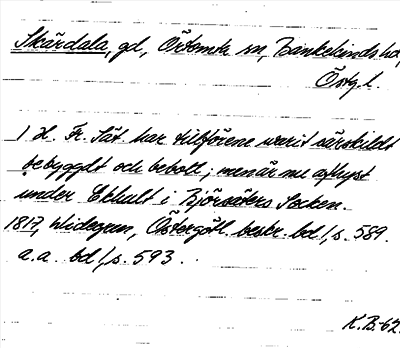 Skärdala, gd, Östomta sn, Bankekinds hd,
Östg.l.
1 h. Fr. Sät. har tillförene warit särskildt
bebyggdt och bebott; men är nu afhyst
under Ekhult i Björsäters Socken.
1817, Widegren, Östergötl. beskr. bd 1, s. 589.
a.a. bd 1, s. 593.
K.B-62.